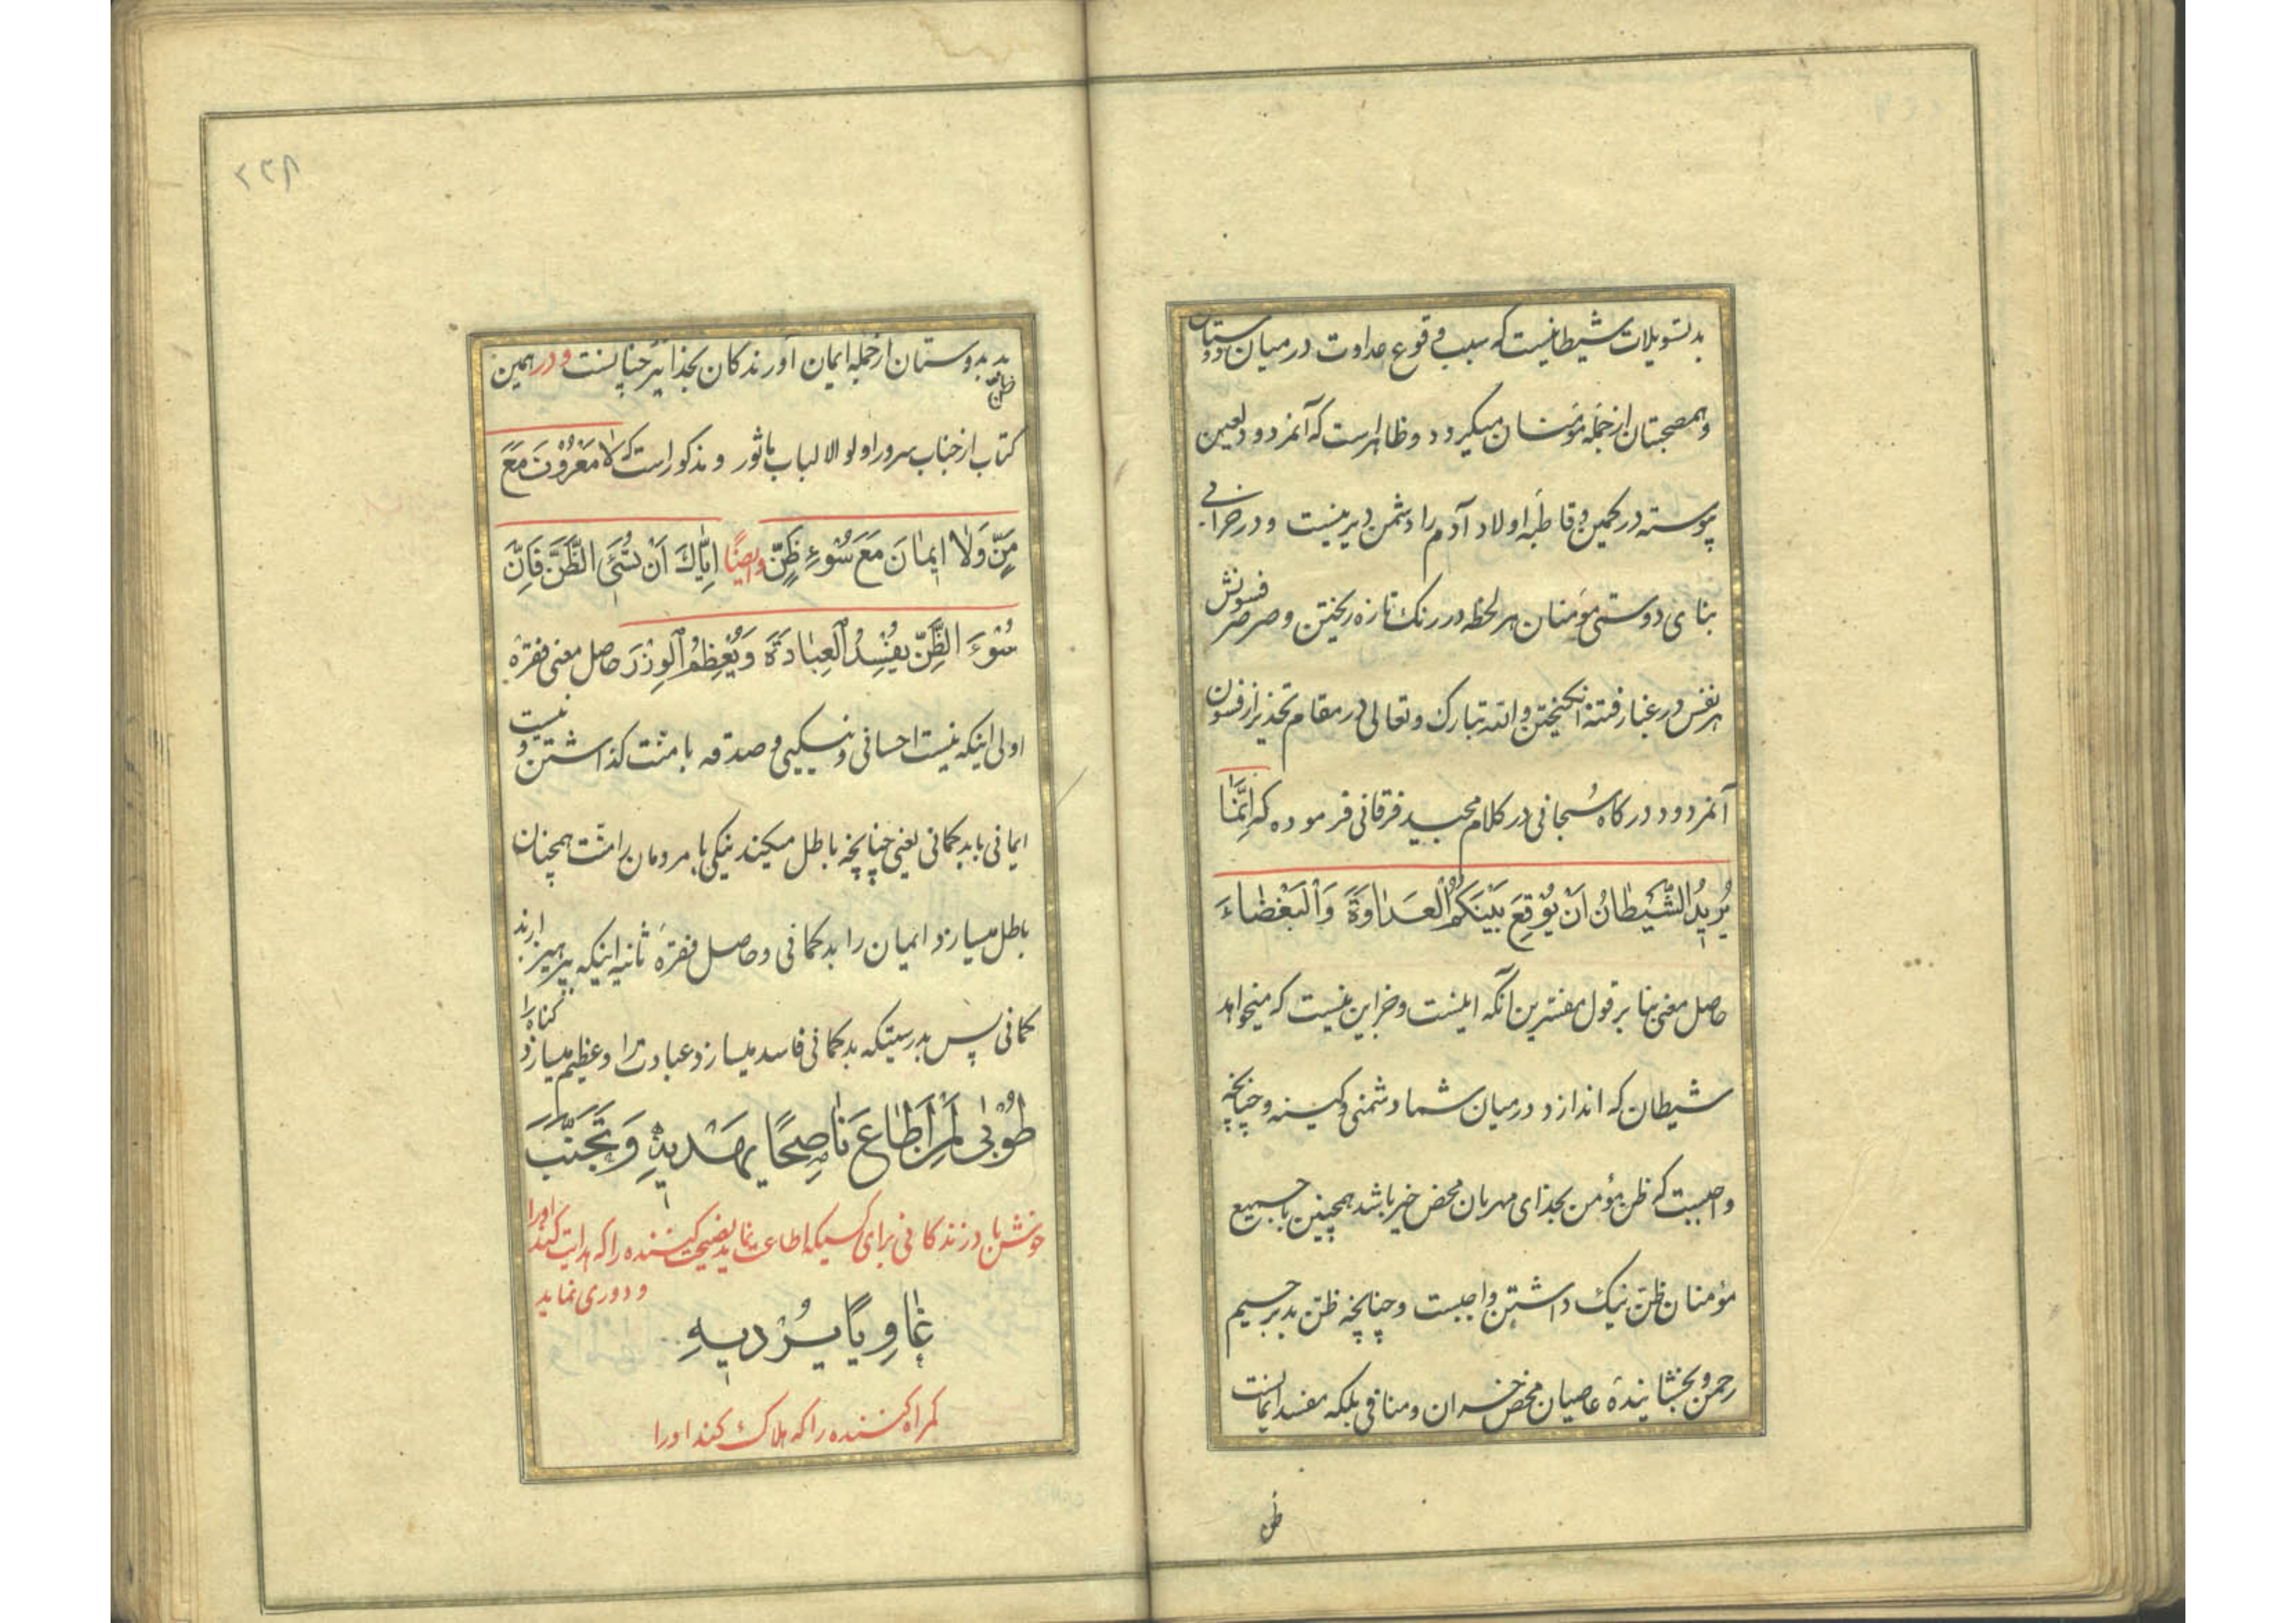 بد تسویلات شیطانیست که سبب وقوع عداوت در میان دوستان
و همصحبتان از جمله مؤمنان میکردد و ظاهر است که آنمردود لعین
پیوسته در کمین و قاطبه اولاد آدم را دشمن دیرینیست و در خرابی
بنای دوستی مؤمنان هر لحظه در رنک تازه ریختن و صرصر فسونش
هر نفس در غبار فتنه انکیختن و الله تبارک و تعالی در مقام تحذیر از فسون
آنمردود درکاه سبحانی در کلام مجید فرقانی فرموده که اِنَّمَا
یُرِیدُ الشَّیْطَانُ اَنْ یُوْقِعَ بَیْنَکُمُ الْعَدَاوَةَ وَالْبَغْضَاءَ
حاصل معنی بنا بر قول مفسرین آنکه اینست و جز این نیست که میخواهد
شیطان که اندازد در میان شما دشمنی و کینه و چنانچه
واجبست که ظن مؤمن بخدای مهربان محض خیر باشد همچنین با جمیع
مؤمنان ظنّ نیک داشتن واجبست و چنانچه ظن بد برحیم
رحمن و بخشاینده عاصیان محض خسران و منافی بلکه مفسد ایمانست
ظن
۲۲۸
ظن بد بدوستان از جمله ایمان آورندکان بخدا نیز چنانست و در همین
کتاب از جناب سرور اولو الالباب ماثور و مذکور است که لَا مَعْرُوْفَ مَعَ
مَنٍّ وَلَا اِیمَانَ مَعَ سُوْءِ ظَنٍّ و ایضًا اِیَّاكَ اَنْ تُسِیْءَ الظَّنَّ فَاِنَّ
سُوْءَ الظَّنِّ یُفْسِدُ الْعِبَادَةَ وَیُعَظِّمُ الْوِزْرَ حاصل معنی فقره
اولی اینکه نیست احسانی و نیکیی و صدقه با منت کذاشتن و نیست
ایمانی با بدکمانی یعنی چنانچه باطل میکند نیکی با مردمان را منّت همچنان
باطل میسازد ایمان را بدکمانی و حاصل فقرهٔ ثانیه اینکه بپرهیز از بد
کمانی پس بدرستیکه بدکمانی فاسد میسازد عبادت را و عظیم میسازد کناه را
طُوْبٰی لِمَنْ اَطَاعَ نَاصِحًا یَهْدِیْهِ وَتَجَنَّبَ
خوش باد زندکانی برای کسیکه اطاعت نماید نصیحت کننده را که هدایت کند او را
و دوری نماید
غَاوِیًا یُرْدِیهِ
کمراه کننده را که هلاک کند او را